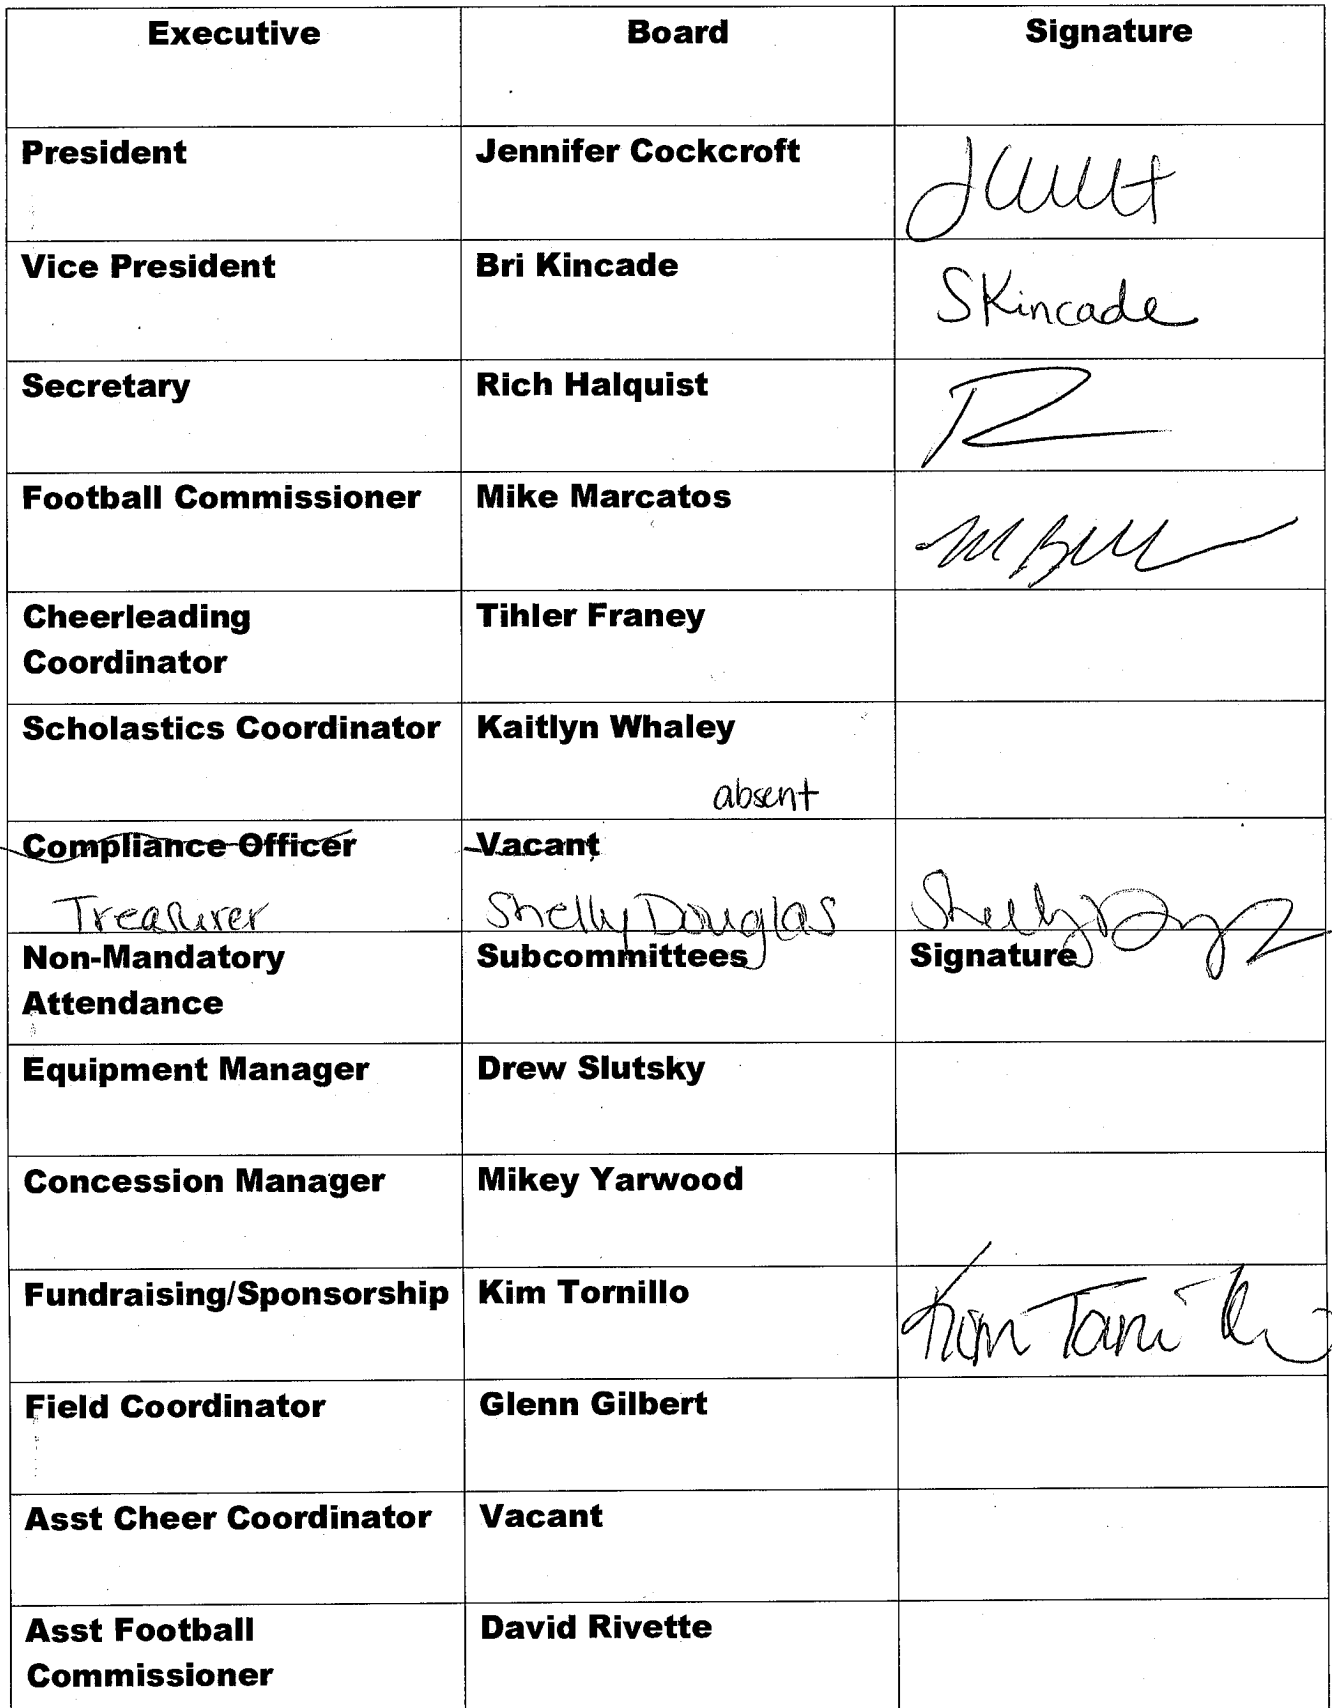 Executive Board Signature
President Jennifer Cockcroft
Vice President Bri Kincade SKincade
Secretary Rich Halquist
Football Commissioner Mike Marcatos
Cheerleading Tihler Franey
Coordinator
Scholastics Coordinator Kaitlyn Whaley
absent
Compliance Officer Vacant
Treasurer Shelly Douglas
Non-Mandatory Subcommittees Signature
Attendance
Equipment Manager Drew Slutsky
Concession Manager Mikey Yarwood
Fundraising/Sponsorship Kim Tornillo Kim
Field Coordinator Glenn Gilbert
Asst Cheer Coordinator Vacant
Asst Football David Rivette
Commissioner